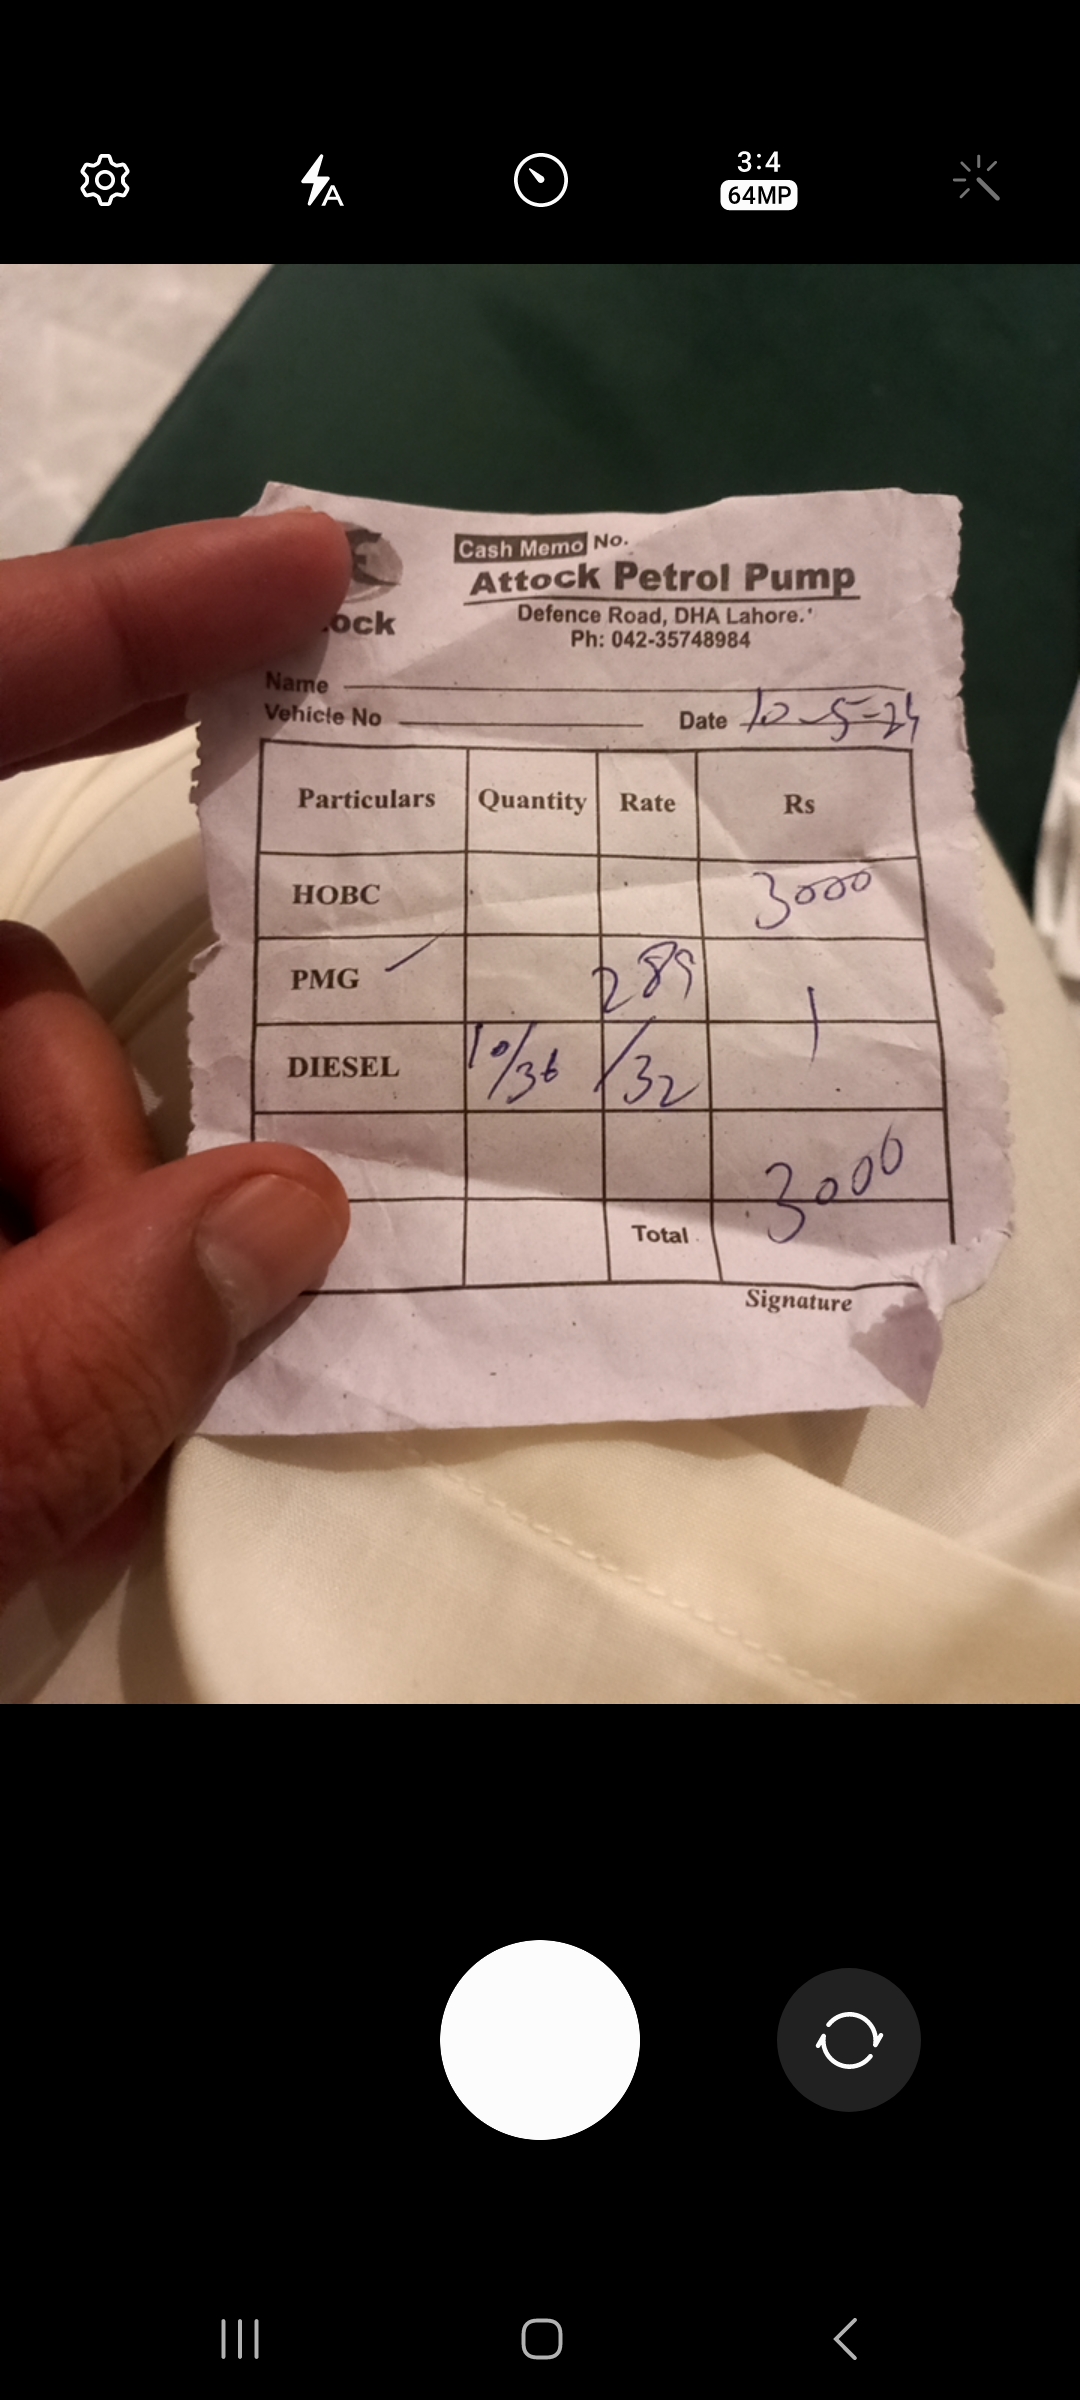 3:4
64MP
Cash Memo No.
Attock Petrol Pump
ock
Defence Road, DHA Lahore.
Ph: 042-35748984
Name
Vehicle No Date 10-5-24
Particulars Quantity Rate Rs
HOBC 3000
PMG 289
DIESEL 10/36 /32
3000
Total
Signature